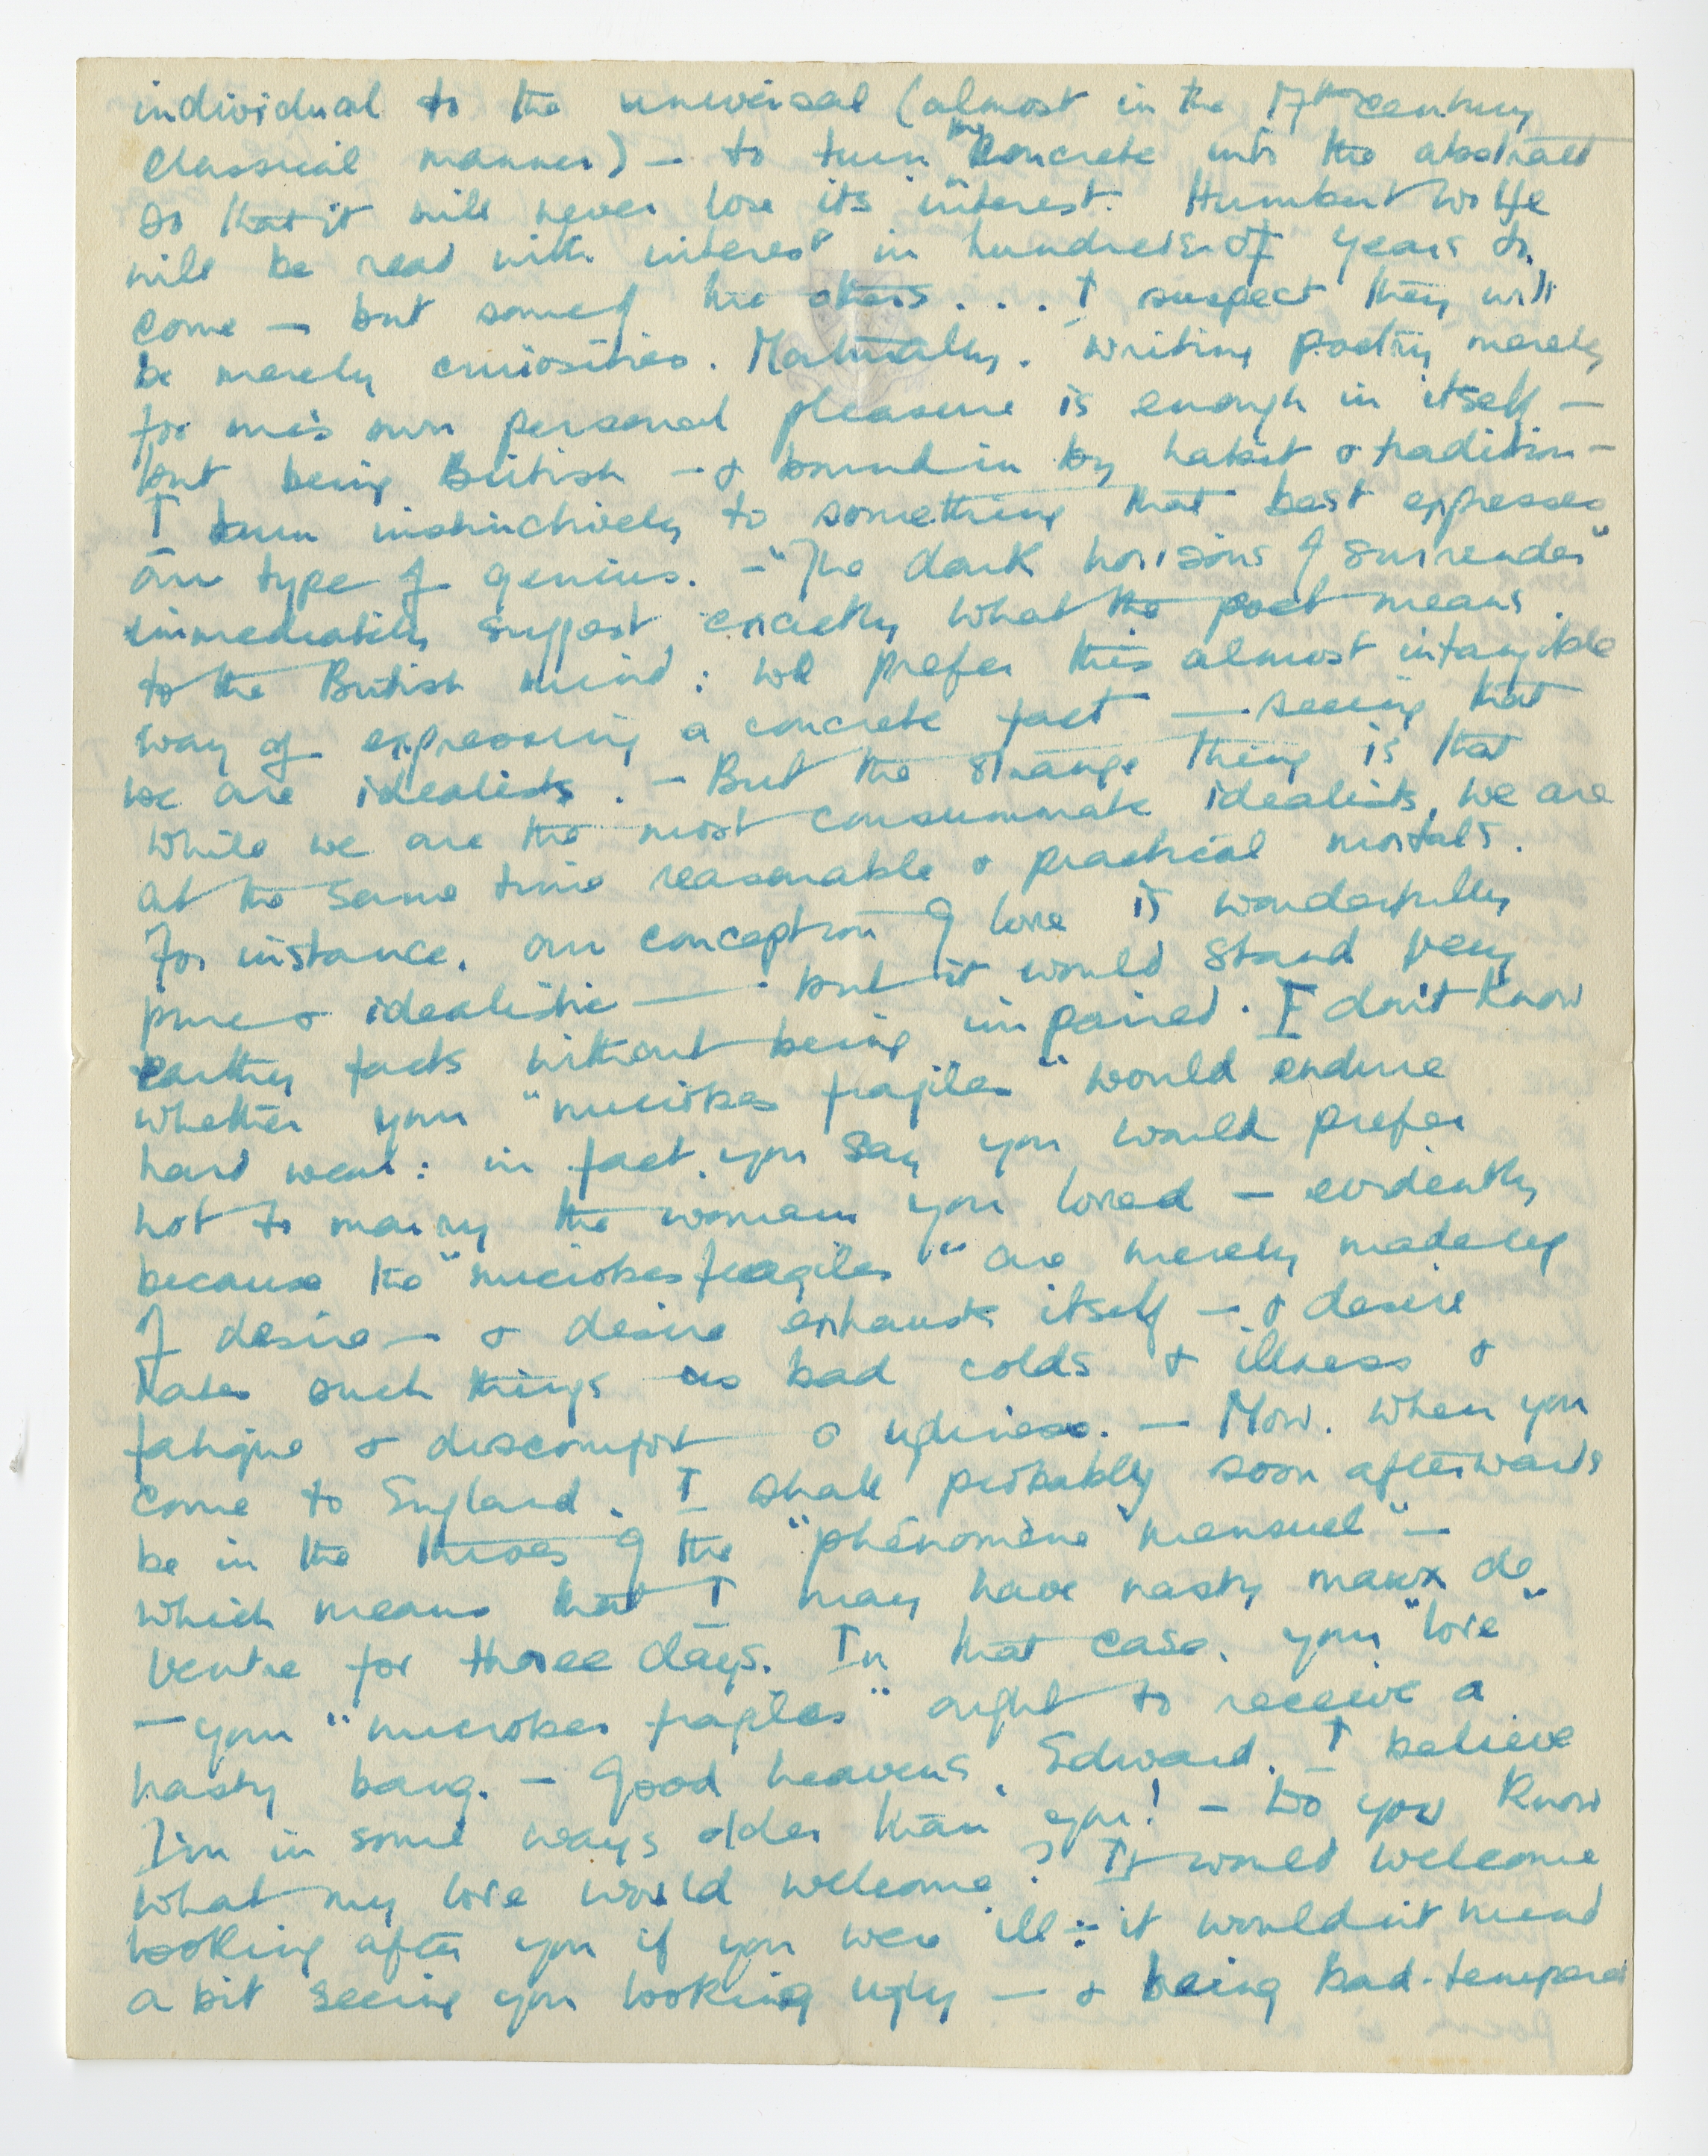 individual to the universal (almost in the 17th century
classical manner) – to turn the concrete into the abstract
so that it will never lose its interest. Humbert Wolfe
will be read with interest in hundreds of years to
come – but some of the others . . . I suspect they will
be merely curiosities. Naturally, writing poetry merely
for one's own personal pleasure is enough in itself –
but being British – & bound in by habit & tradition –
I turn instinctively to something that best expresses
our type of genius. – "The dark horizons of surrender"
immediately suggest exactly what the poet means
to the British mind: we prefer this almost intangible
way of expressing a concrete fact — seeing that
we are idealists. – But the strange thing is that
while we are the most consummate idealists, we are
at the same time reasonable & practical mortals.
For instance, our conception of love is wonderfully
pure & idealistic — but it would stand very
earthy facts without being impaired. I don't know
whether your "microbes fragiles" would endure
hard wear: in fact, you say you would prefer
not to marry the woman you loved – evidently
because the "microbes fragiles" are merely made up
of desire – & desire exhausts itself – & desire
hates such things as bad colds & illness &
fatigue & discomfort & ugliness. – Now, when you
come to England, I shall probably soon afterwards
be in the throes of the "phénomène mensuel" –
which means that I may have nasty maux de
ventre for three days. In that case, your "love"
– your "microbes fragiles" ought to receive a
nasty bang. – Good heavens, Edward, I believe
I'm in some ways older than you! – Do you know
what my love would welcome? It would welcome
looking after you if you were ill: it wouldn't mind
a bit seeing you looking ugly – & being bad-tempered